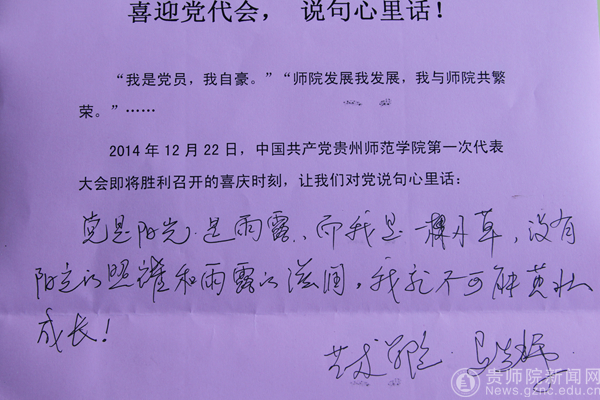 喜迎党代会，说句心里话！
“我是党员，我自豪。”“师院发展我发展，我与师院共繁
荣。”……
2014 年 12 月 22 日，中国共产党贵州师范学院第一次代表
大会即将胜利召开的喜庆时刻，让我们对党说句心里话：
党是阳光，是雨露，而我是一棵小草，没有
阳光的照耀和雨露的滋润，我就不可能茁壮
成长！
贵师院新闻网
News.gznc.edu.cn